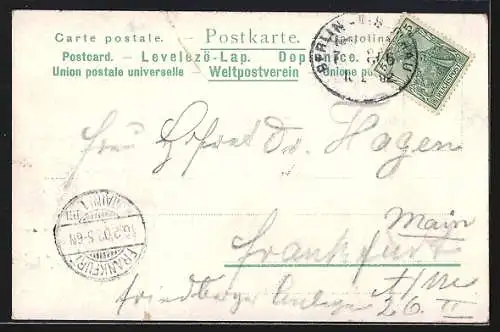 Carte postale. — Postkarte. — Cartolina
Postcard. — Levelező-Lap. Dopisnice.
Union postale universelle — Weltpostverein — Unione postale
BERLIN
Hofrat Dr. Hagen
Main
Frankfurt a/M
Friedberger Anlage 26 II
FRANKFURT (MAIN) 1
16.2.02.5-6N